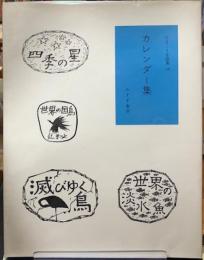 四季の星
カレンダー集
世界の国鳥
滅びゆく鳥
世界の
淡水魚